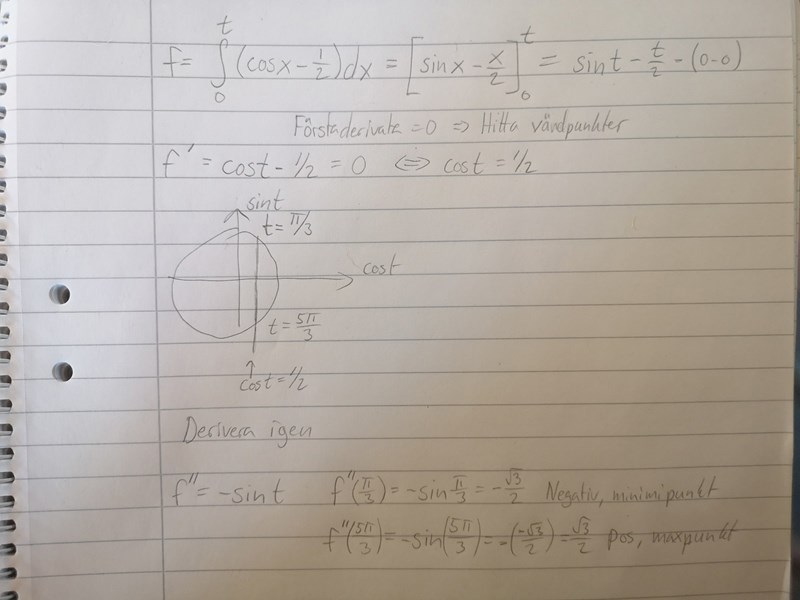 f = ∫₀ᵗ (cosx - 1/2) dx = [sinx - x/2]₀ᵗ = sint - t/2 - (0-0)
Förstaderivata = 0 ⇒ Hitta värdpunkter
f' = cost - 1/2 = 0 ⇔ cost = 1/2
sint
t = π/3
cost
t = 5π/3
↑
cost = 1/2
Derivera igen
f'' = -sint f''(π/3) = -sin π/3 = -√3/2 Negativ, minimipunkt
f''(5π/3) = -sin(5π/3) = -(-√3/2) = √3/2 pos, maxpunkt